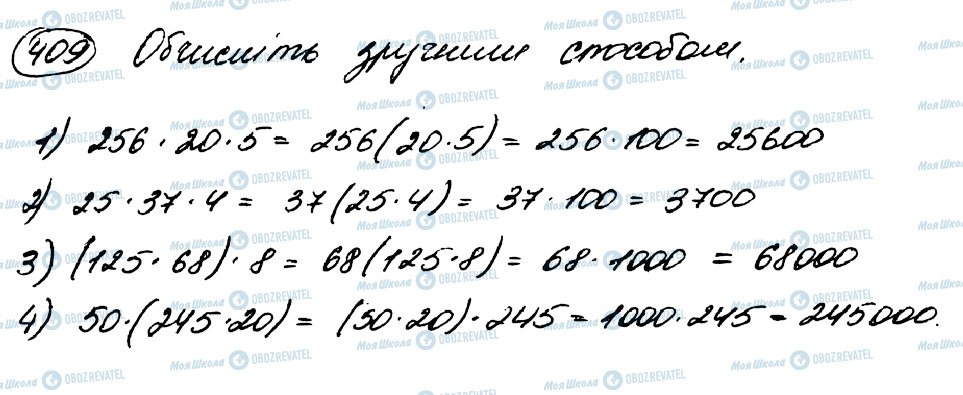 409 Обчисліть зручним способом.
1) 256 · 20 · 5 = 256(20 · 5) = 256 · 100 = 25600
2) 25 · 37 · 4 = 37(25 · 4) = 37 · 100 = 3700
3) (125 · 68) · 8 = 68(125 · 8) = 68 · 1000 = 68000
4) 50 · (245 · 20) = (50 · 20) · 245 = 1000 · 245 = 245000.
Моя Школа OBOZREVATEL